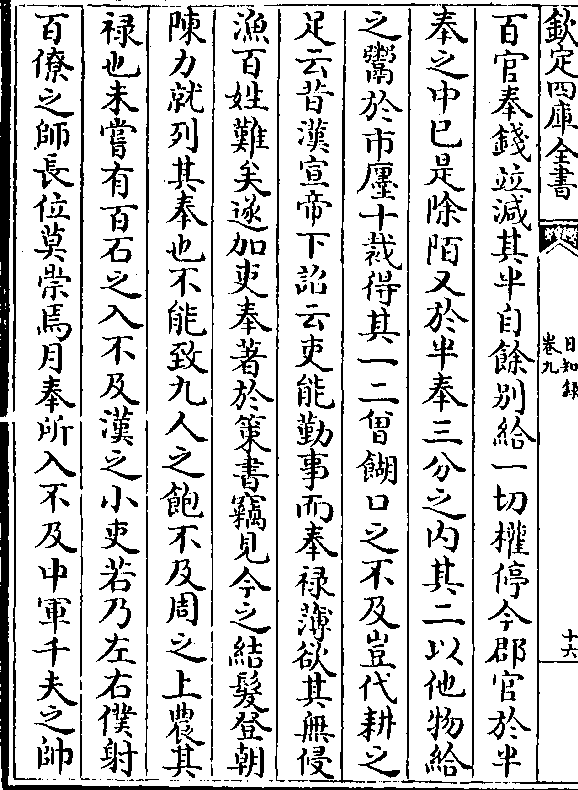 欽定四庫全書
日知録
卷九
十六
百官奉錢竝減其半自餘别給一切權停今郡官於半
奉之中已是除陌又於半奉三分之内其二以他物給
之鬻於市廛十裁得其一二曾餬口之不及豈代耕之
足云昔漢宣帝下詔云吏能勤事而奉禄薄欲其無侵
漁百姓難矣遂加吏奉著於策書竊見今之結髮登朝
陳力就列其奉也不能致九人之飽不及周之上農其
禄也未嘗有百石之入不及漢之小吏若乃左右僕射
百僚之師長位莫崇焉月奉所入不及中軍千夫之帥